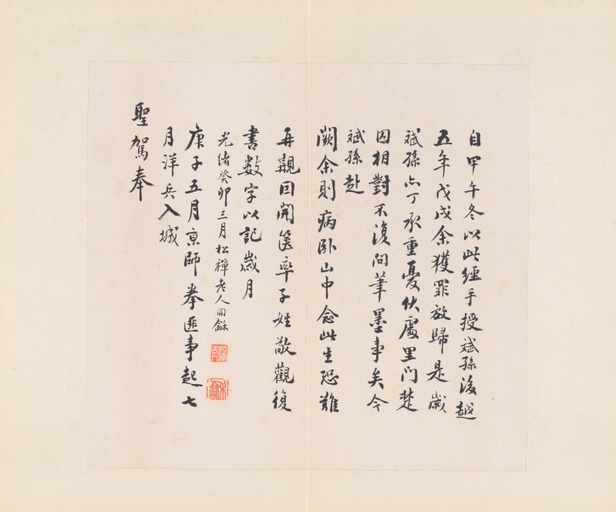 自甲午冬以此经手授斌孫後越
五年戊戌余獲罪放歸是歲
斌孫亦丁承重憂伏處里门楚
囚相對不復問筆墨事矣今
斌孫赴
闕余則病卧山中念此生恐難
再觀因開篋率子姓敬觀復
書數字以記歲月
光緒癸卯三月松禪老人同龢
庚子五月京師拳匪事起七
月洋兵入城
聖駕奉